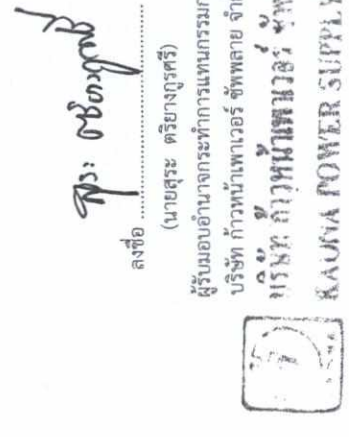 ลงชื่อ
(นายสุระ ตรียางกูรศรี)
ผู้รับมอบอำนาจกระทำการแทนกรรมก
บริษัท ก้าวหน้าพาวเวอร์ ซัพพลาย จำ
บริษัท ก้าวหน้าพาวเวอร์ ซัพ
KAONA POWER SUPPLY